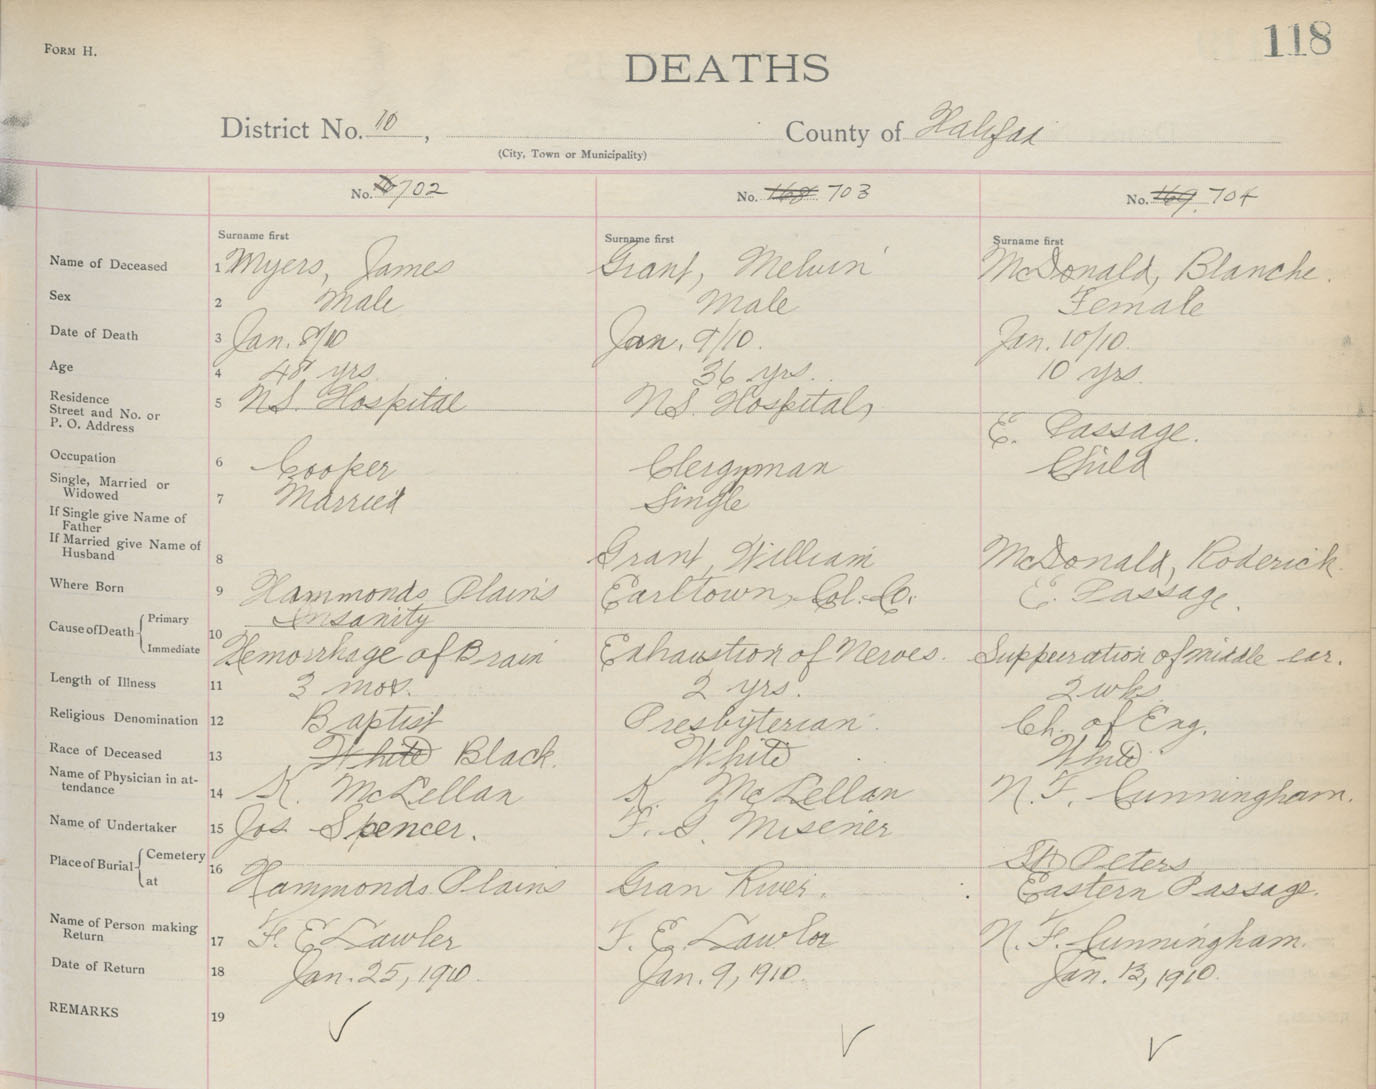 118
FORM H.
DEATHS
District No. 10, County of Halifax
(City, Town or Municipality)
No. 702 No. 168 703 No. 169 704
Surname first Surname first Surname first
Name of Deceased 1 Myers, James Grant, Melvin McDonald, Blanche.
Sex 2 Male Male Female
Date of Death 3 Jan. 8/10 Jan. 9/10. Jan. 10/10.
Age 4 48 yrs 36 yrs. 10 yrs.
Residence
Street and No. or
P. O. Address 5 NS. Hospital NS. Hospital, E. Passage.
Occupation 6 Cooper Clergyman Child
Single, Married or
Widowed 7 Married Single
If Single give Name of
Father
If Married give Name of
Husband 8 Grant, William McDonald, Roderick.
Where Born 9 Hammonds Plains Earltown, Col. Co. E. Passage.
Cause of Death Primary Insanity
Immediate 10 Hemorrhage of Brain Exhaustion of Nerves. Suppuration of middle ear.
Length of Illness 11 3 mos. 2 yrs. 2 wks
Religious Denomination 12 Baptist Presbyterian. Ch. of Eng.
Race of Deceased 13 White Black. White White
Name of Physician in at-
tendance 14 K. McLellan K. McLellan N. F. Cunningham.
Name of Undertaker 15 Jos. Spencer. F. S. Misener
Place of Burial Cemetery St Peters
at 16 Hammonds Plains Gran River. Eastern Passage.
Name of Person making
Return 17 F. E Lawler F. E. Lawlor N. F. Cunningham.
Date of Return 18 Jan. 25, 1910. Jan. 9, 1910. Jan. 13, 1910.
REMARKS 19